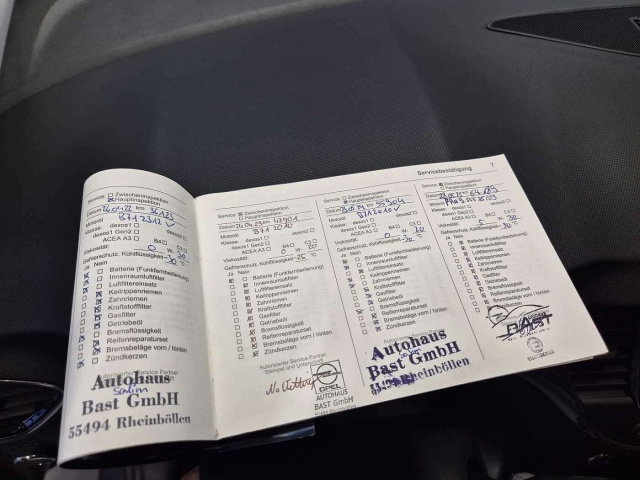 7
Servicebestätigung
Service: Zwischeninspektion
Hauptinspektion
Datum 26.01.22 km 36123
Motoröl B712312
Klasse: dexos1 dexos2
dexos1 Gen2 B4 C3
ACEA A3
Viskosität: 0 W- 30
Gefrierschutz, Kühlflüssigkeit -30 °C
Ja Nein
Batterie (Funkfernbedienung)
Innenraumluftfilter
Luftfiltereinsatz
Keilrippenriemen
Zahnriemen
Kraftstofffilter
Gasfilter
Getriebeöl
Bremsflüssigkeit
Reifenreparaturset
Bremsbeläge vorn / hinten
Zündkerzen
Autohaus
Bast GmbH
55494 Rheinböllen
Service: Zwischeninspektion
Hauptinspektion
km 43901
Motoröl B712010
Klasse: dexos1 dexos2
dexos1 Gen2 B4 C3
ACEA A3
Viskosität: 0 W- 20
Gefrierschutz, Kühlflüssigkeit -25 °C
Ja Nein
Batterie (Funkfernbedienung)
Innenraumluftfilter
Luftfiltereinsatz
Keilrippenriemen
Zahnriemen
Kraftstofffilter
Gasfilter
Getriebeöl
Bremsflüssigkeit
Reifenreparaturset
Bremsbeläge vorn / hinten
Zündkerzen
Autorisierter Service Partner
Stempel und Unterschrift
OPEL
AUTOHAUS
BAST GmbH
55494 Rheinböllen
Service: Zwischeninspektion
Hauptinspektion
km 55904
Motoröl B712010
Klasse: dexos1 dexos2
dexos1 Gen2 B4 C3
ACEA A3
Viskosität: 0 W- 20
Gefrierschutz, Kühlflüssigkeit -30 °C
Ja Nein
Batterie (Funkfernbedienung)
Innenraumluftfilter
Luftfiltereinsatz
Keilrippenriemen
Zahnriemen
Kraftstofffilter
Gasfilter
Getriebeöl
Bremsflüssigkeit
Reifenreparaturset
Bremsbeläge vorn / hinten
Zündkerzen
Autohaus
Bast GmbH
Rheinböllen
Service: Zwischeninspektion
Hauptinspektion
km 64189
Klasse: dexos1 dexos2
dexos1 Gen2 B4 C3
ACEA A3
Viskosität: 5 W- 30
Gefrierschutz, Kühlflüssigkeit -30 °C
Ja Nein
Batterie (Funkfernbedienung)
Innenraumluftfilter
Luftfiltereinsatz
Keilrippenriemen
Zahnriemen
Kraftstofffilter
Gasfilter
Getriebeöl
Bremsflüssigkeit
Reifenreparaturset
Bremsbeläge vorn / hinten
Zündkerzen
BAST